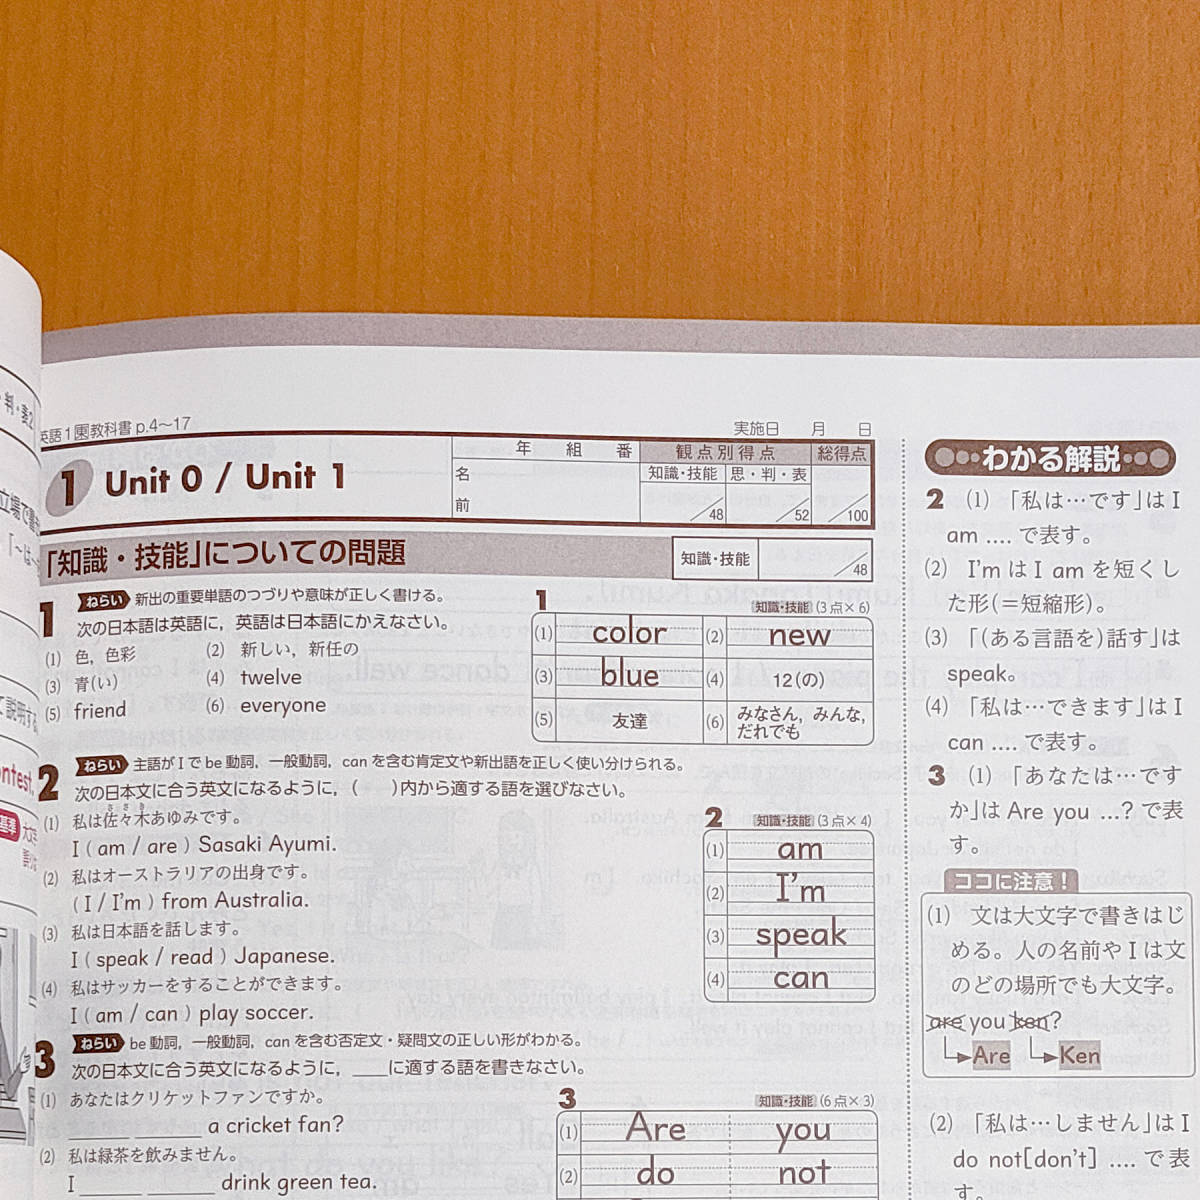 英語1 東 教科書 p.4〜17
実施日 月 日
1 Unit 0 / Unit 1
年 組 番
名前
観点別得点 総得点
知識・技能 思・判・表
/48 /52 /100
「知識・技能」についての問題
知識・技能 /48
1 ねらい 新出の重要単語のつづりや意味が正しく書ける。
次の日本語は英語に，英語は日本語にかえなさい。
(1) 色，色彩 (2) 新しい，新任の
(3) 青(い) (4) twelve
(5) friend (6) everyone
1 知識・技能 (3点×6)
(1) color (2) new
(3) blue (4) 12(の)
(5) 友達 (6) みなさん，みんな，だれでも
2 ねらい 主語が I で be 動詞，一般動詞，can を含む肯定文や新出語を正しく使い分けられる。
次の日本文に合う英文になるように，( )内から適する語を選びなさい。
(1) 私は佐々木あゆみです。
I ( am / are ) Sasaki Ayumi.
(2) 私はオーストラリアの出身です。
( I / I'm ) from Australia.
(3) 私は日本語を話します。
I ( speak / read ) Japanese.
(4) 私はサッカーをすることができます。
I ( am / can ) play soccer.
2 知識・技能 (3点×4)
(1) am
(2) I'm
(3) speak
(4) can
3 ねらい be 動詞，一般動詞，can を含む否定文・疑問文の正しい形がわかる。
次の日本文に合う英文になるように，＿＿に適する語を書きなさい。
(1) あなたはクリケットファンですか。
______ ______ a cricket fan?
(2) 私は緑茶を飲みません。
I ______ ______ drink green tea.
3 知識・技能 (6点×3)
(1) Are you
(2) do not
わかる解説
2 (1) 「私は…です」は I
am …. で表す。
(2) I'm は I am を短くし
た形(＝短縮形)。
(3) 「(ある言語を)話す」は
speak。
(4) 「私は…できます」は I
can …. で表す。
3 (1) 「あなたは…です
か」は Are you …? で表
す。
ココに注意！
(1) 文は大文字で書きはじ
める。人の名前や I は文
のどの場所でも大文字。
are you ken?
Are Ken
(2) 「私は…しません」は I
do not[don't] …. で表
す。